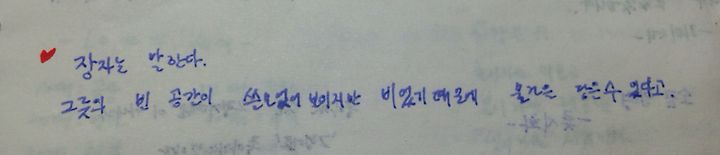 장자는 말한다.
그릇의 빈 공간이 쓸모없어 보이지만 비었기 때문에 물건을 담을 수 있다고.